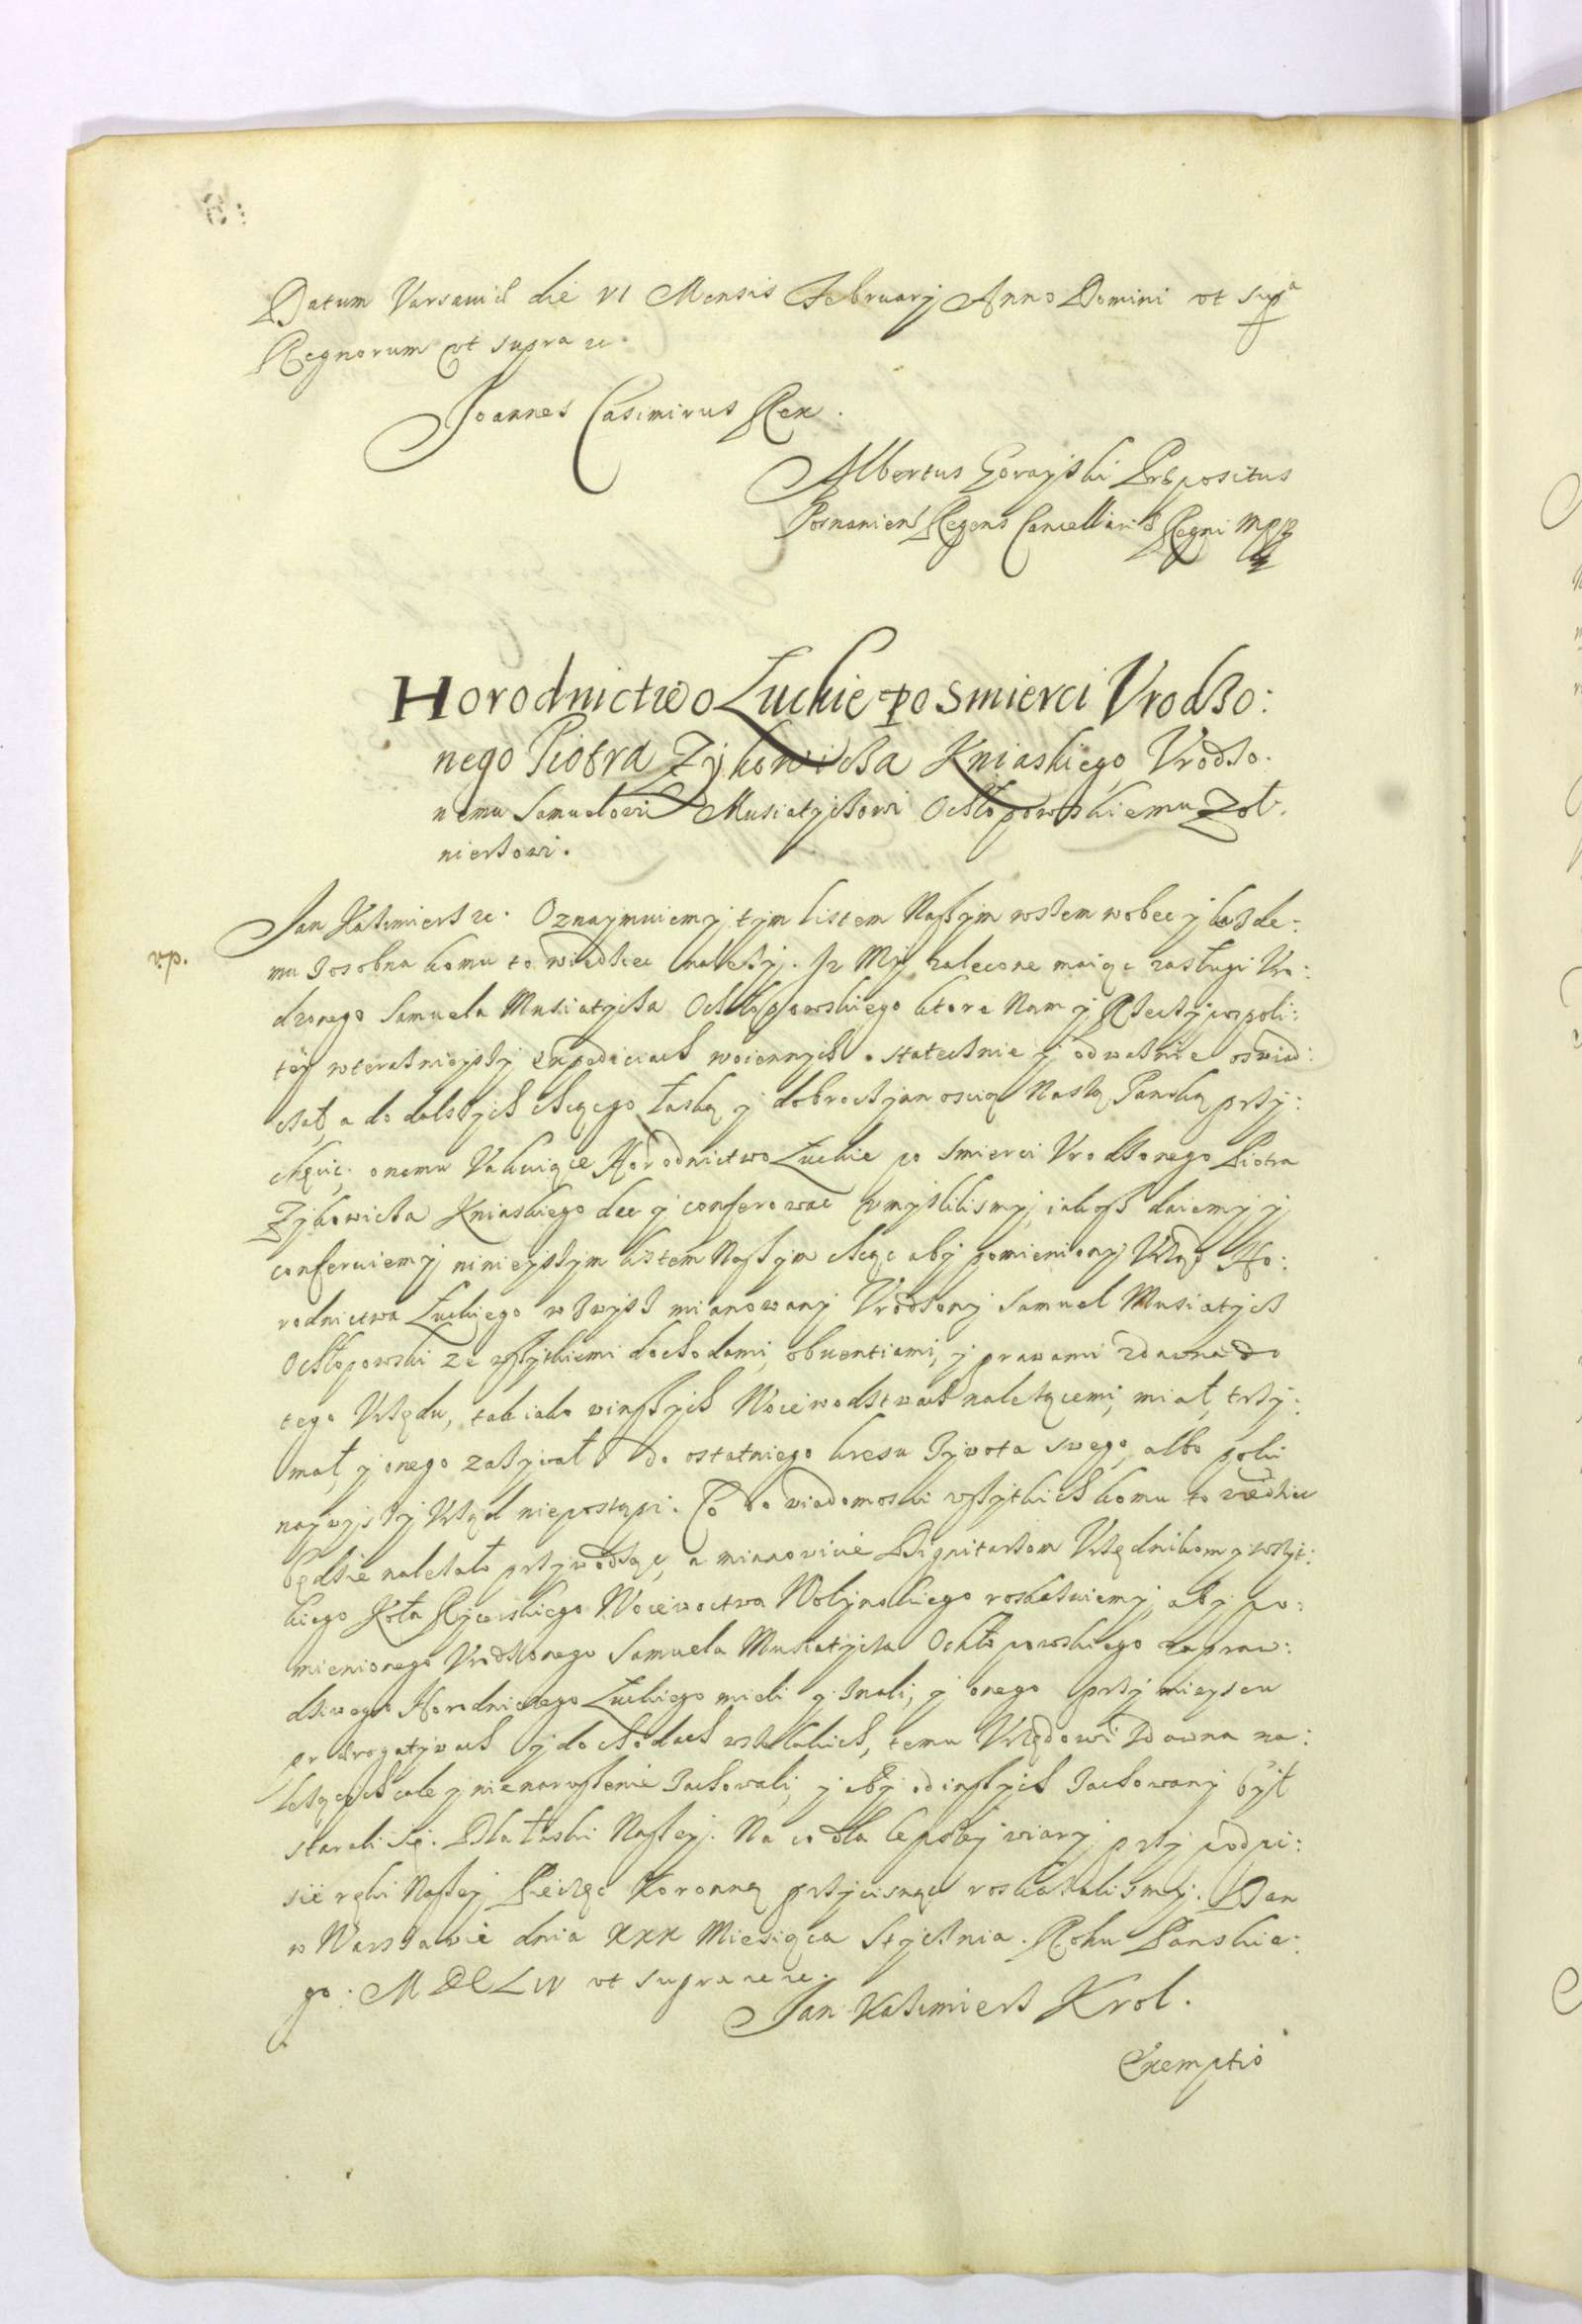 Datum Varsaviæ die VI Mensis February Anno Domini vt supª
Regnorum vt supra &c.
Joannes Casimirus Rex.
Albertus Gorayski Præpositus
Posnanien Regens Cancellariæ Regni mpp
Horodnictwo Łuckie po smierci Vrodzo:
nego Piotra Zykowicza Kniaskiego Vrodzo.
nemu Samuelowi Musiatyczowi Ochłopowskiemu Zoł.
nierzowi.
Jan Kazimierz &c. Oznaymuiemy tym listem Naszym wszem wobec y kazde:
v.p.
mu zosobna komu to wiedziec nalezy. Iz My zalecone maiąc zasługi Vro:
dzonego Samuela Musiatycza Ochłopowskiego ktore Nam y Rzeczyposp oli:
tey wteraznieyszy expediciach woiennych statecznie y odwaznie oswiad:
czał, a do dalszych chcąc go łaską y dobroczynnoscią Naszą Panską przy:
chęcic, onemu Vakuiące Horodnictwo Łuckie po smierci Vrodzonego Piotra
Zykowicza Kniaskiego dac y conferowac vmyslilismy, iakosz daiemy y
conferuiemy ninieyszym listem Naszym chcąc aby pomieniony Vrząd Ho:
rodnictwa Łuckiego w zwysz mianowany Vrodzony Samuel Musiatycz
Ochłopowski ze wszytkiemi dochodami, obuentiami, y prawami zdawna do
tego Vrzędu, tak iako winszych Woiewodztwach nalezącemi, miał, trzy:
mał, y onego zazywał do ostatniego kresu zywota swego, albo poki
naywyszy Vrząd niepostąpi. Co do wiadomosci wszytkich komu to wiedziec
będzie nalezało przywodząc, a mianowicie Dignitarzom Vrzędnikom y wszyt:
kiego Koła Rycerskiego Woiewoctwa Wołynskiego roskazuiemy, aby po:
mienionego Vrodzonego Samuela Musiatycza Ochłopowskiego zapraw:
dziwego Horodniczego Łuckiego mieli y znali, y onego przy mieyscu
prærogatywach y dochodach wszelakich, temu Vrzędowi zdawna na:
lezących cale y nienaruszenie zachowali, y aby od inszych zachowany był
starali się. Dla łaski Naszey. Na co dla lepszey wiary, przy podpi:
sie ręki Naszey Pieczęc Koronną przycisnąc roskazalismy. Dan
w Warszawie dnia XXX Miesiąca Stycznia. Roku Panskie:
go. MDCLIV vt supra &c &c.
Jan Kazimierz Krol.
Exemptio